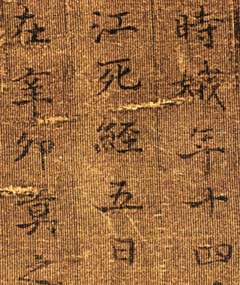 時娥年十四
江死經五日
在辛卯莫之